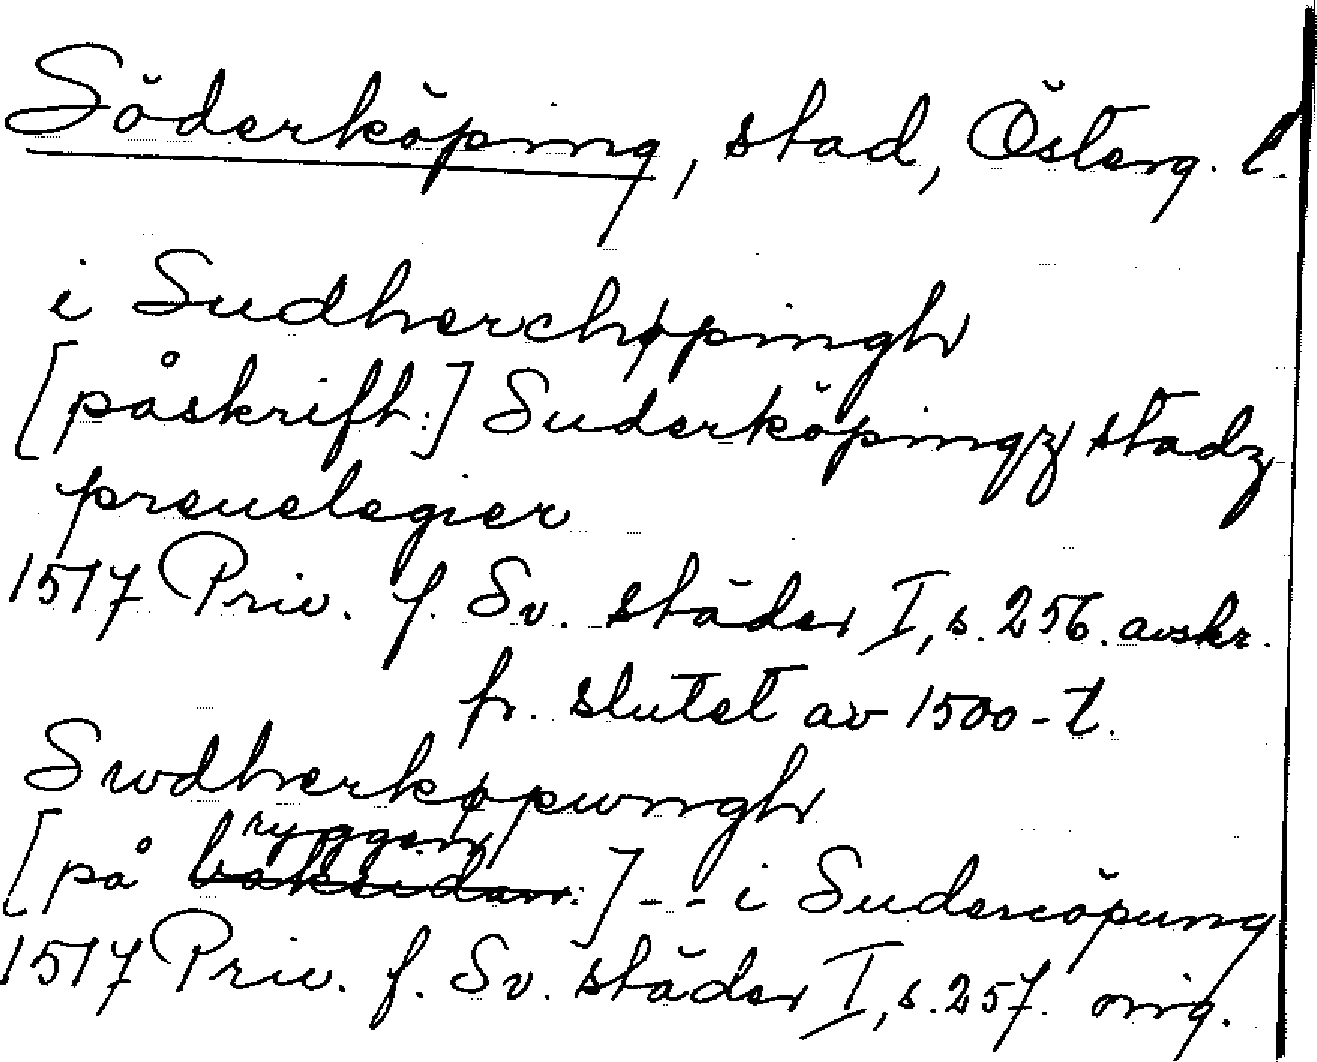 Söderköping, stad, Österg. l.
i Sudherchøpingh
[påskrift:] Suderköpingz stadz
preuelegier
1517 Priv. f. Sv. städer I, s. 256. avskr.
fr. slutet av 1500-t.
Swdherkøpwngh
[på ryggen:] - - i Sudercöpung
1517 Priv. f. Sv. städer I, s. 257. orig.